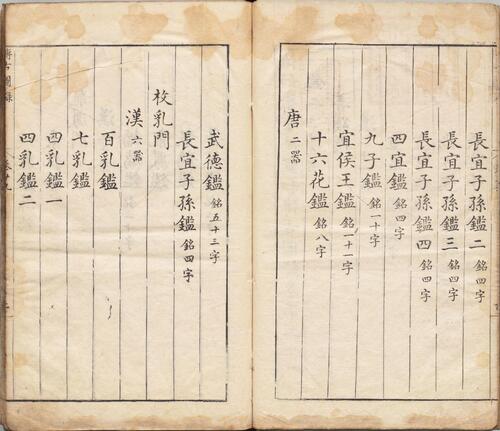 長宜子孫鑑二 銘四字
長宜子孫鑑三 銘四字
長宜子孫鑑四 銘四字
四宜鑑 銘四字
九子鑑 銘一十字
宜侯王鑑 銘一十一字
十六花鑑 銘八字
唐 二器
武德鑑 銘五十三字
長宜子孫鑑 銘四字
枚乳門
漢 六器
百乳鑑
七乳鑑
四乳鑑一
四乳鑑二